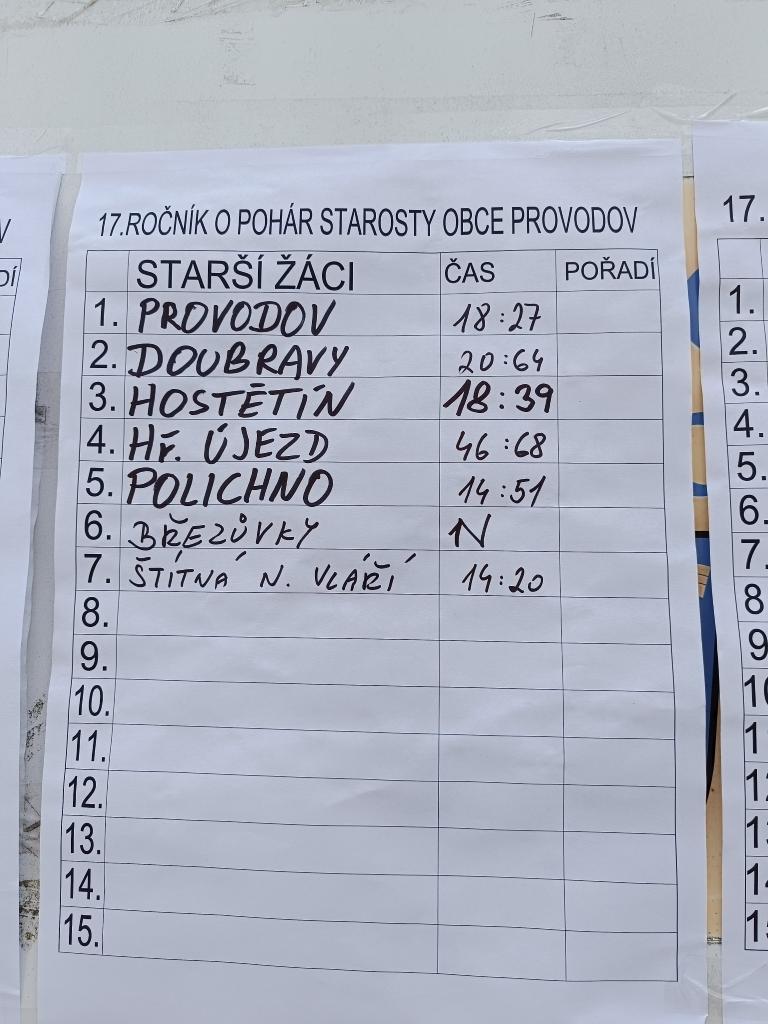 17.ROČNÍK O POHÁR STAROSTY OBCE PROVODOV
STARŠÍ ŽÁCI ČAS POŘADÍ
1. PROVODOV 18:27
2. DOUBRAVY 20:64
3. HOSTĚTÍN 18:39
4. Hř. ÚJEZD 46:68
5. POLICHNO 14:51
6. BŘEZŮVKY N
7. ŠTÍTNÁ N. VLÁŘÍ 14:20
8.
9.
10.
11.
12.
13.
14.
15.
17.
1.
2.
3.
4.
5.
6.
7.
8.